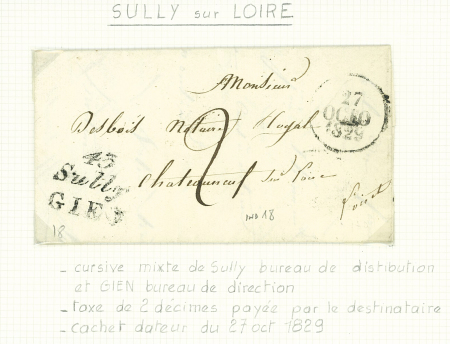 SULLY sur LOIRE
Monsieur
27
OCTO
1829
Desbois Notaire Royal
2
Chateauneuf sur Loire
Loiret
43
Sully
GIEN
18
IND 18
- cursive mixte de Sully bureau de distibution
et GIEN bureau de direction
- taxe de 2 décimes payée par le destinataire
- cachet dateur du 27 oct 1829